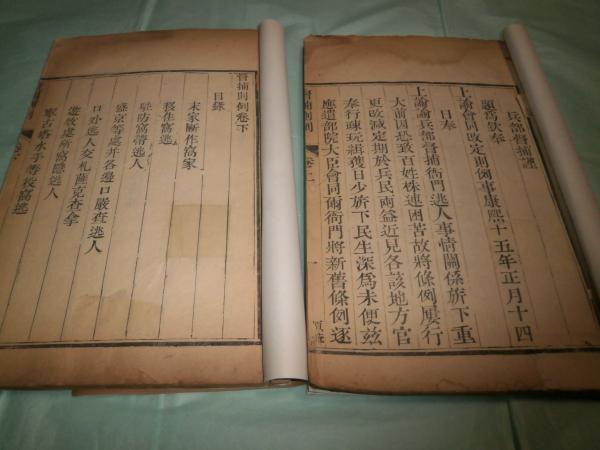 兵部督捕謹
題爲欽奉
上諭會同改定則例事康熙十五年正月十四
日奉
上諭諭兵部督捕衙門逃人事情關係旂下重
大前因恐致百姓株連困苦故將條例屢行
更改減定期於兵民兩益近見各該地方官
奉行疎玩緝獲日少旂下民生深爲未便玆
應遣部院大臣會同爾衙門將新舊條例逐
督捕則例
卷二
一
督捕則例卷下
目錄
末家厮作窩家
移住窩逃
駐防窩害逃人
盛京等處并各邊口嚴查逃人
口外逃人交札薩克查拿
遊牧處所窩隱逃人
寧古塔水手等役窩逃